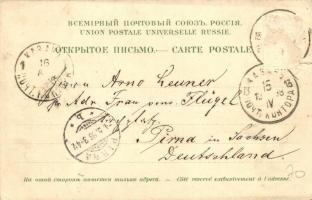 ВСЕМІРНЫЙ ПОЧТОВЫЙ СОЮЗЪ. РОССІЯ.
UNION POSTALE UNIVERSELLE RUSSIE.
ОТКРЫТОЕ ПИСЬМО. — CARTE POSTALE
Herrn Arno Leuner
pr Adr Frau Flügel
Pirna in Sachsen
Deutschland.
На этой сторонѣ пишется только адресъ. — Côté réservé exclusivement à l'adresse.